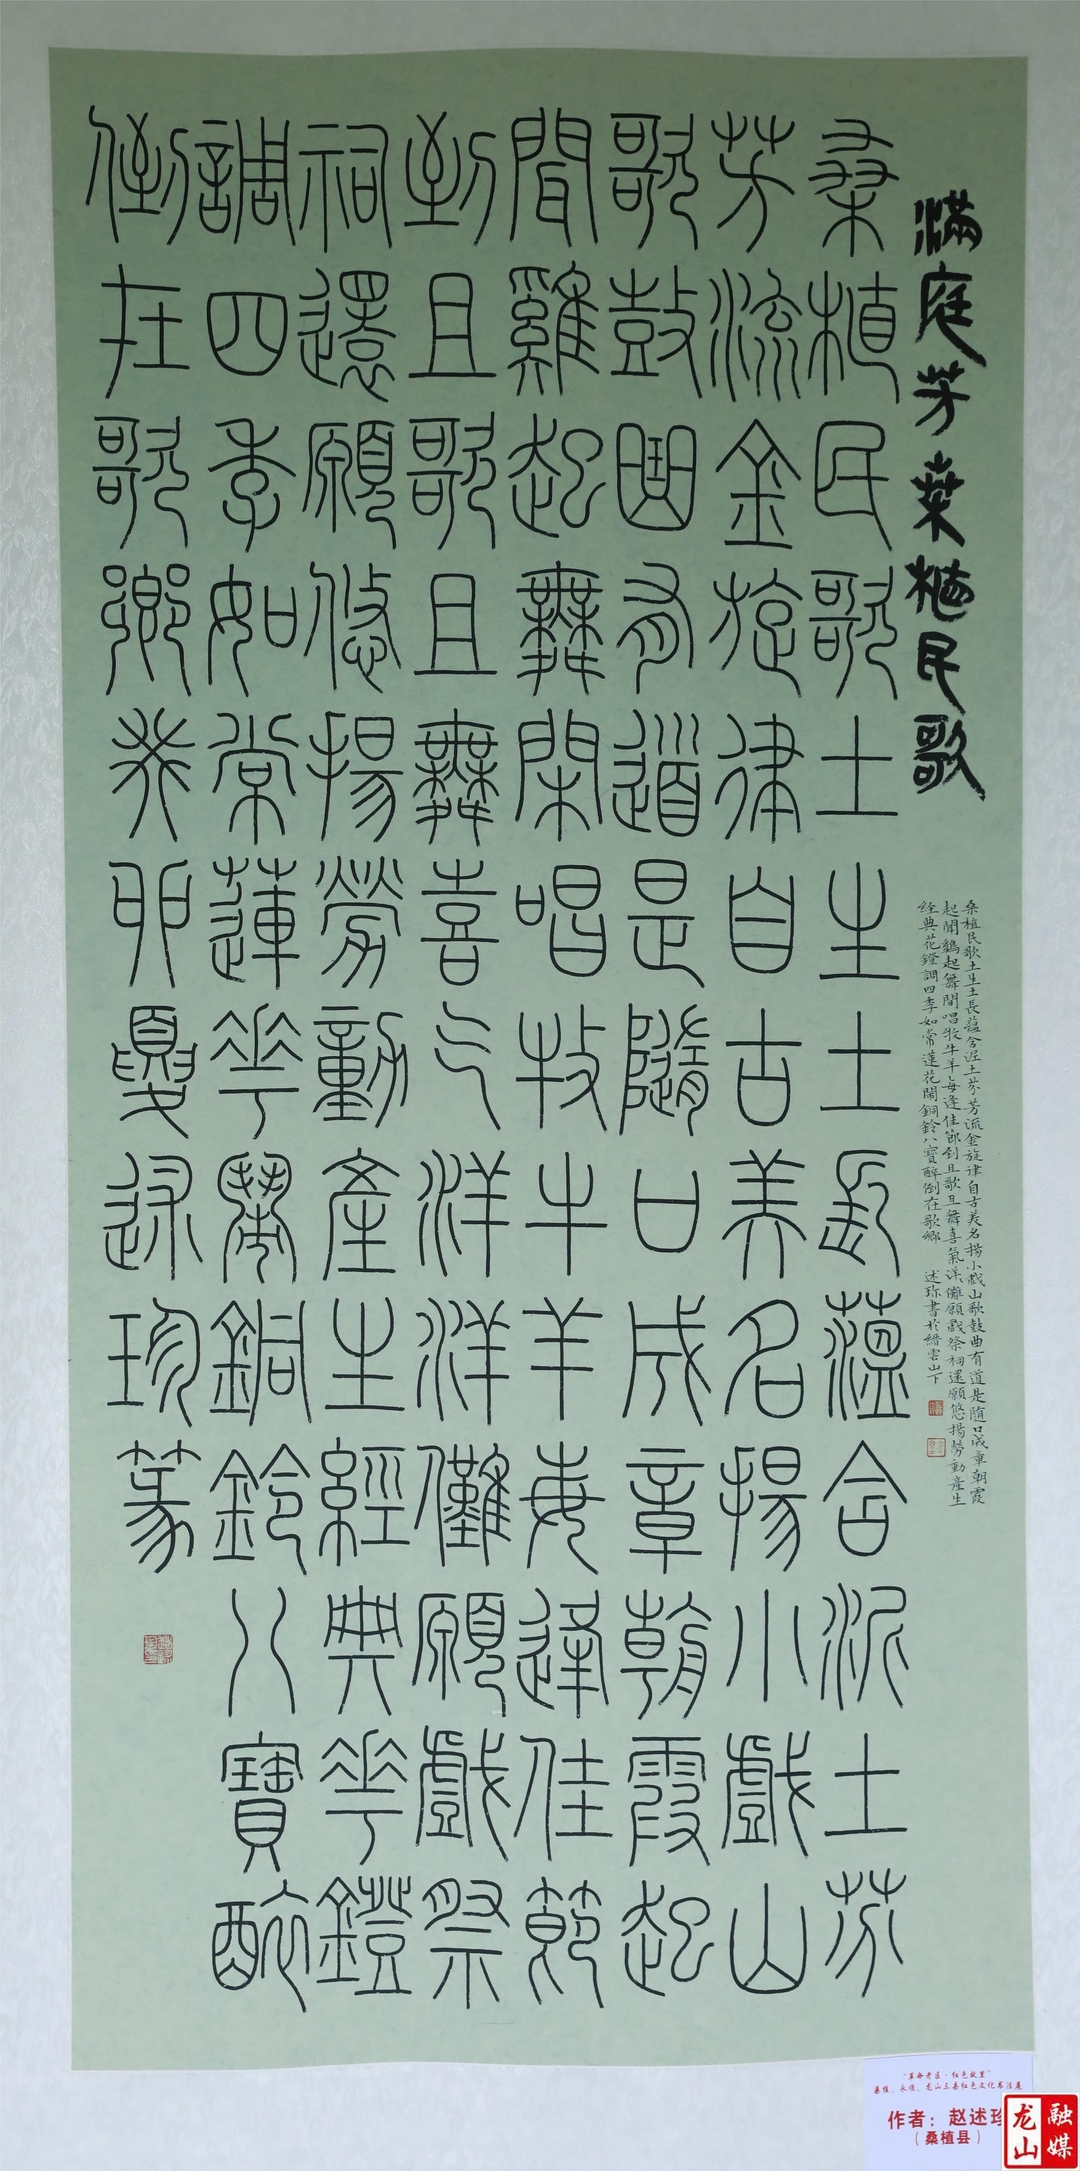 滿庭芳桑植民歌
桑植民歌土生土長蘊含泥土芬芳流金旋律自古美名揚小戲山歌鼓曲有道是随口成章朝霞
起聞鷄起舞閒唱牧牛羊每逢佳節到且歌且舞喜氣洋儺願戲祭祠還願悠揚勞動產生
經典花鐙調四季如常蓮花鬧銅鈴八寶醉倒在歌鄉 述珍書於縉雲山下
桑植民歌土生土長薀含泥土芬
芳流金旋律自古美名揚小戲山
歌鼓曲有道是隨口成章朝霞起
聞雞起舞閑唱牧牛羊每逢佳節
到且歌且舞喜气洋洋儺願戲祭
祠還願悠揚勞動產生經典花鐙
調四季如常蓮花鬧銅鈴八寶醉
倒在歌鄉癸卯夏述珍篆
“革命老区·红色故里”
桑植、永顺、龙山三县红色文化书法展
作者：赵述珍
（桑植县）
龙山融媒